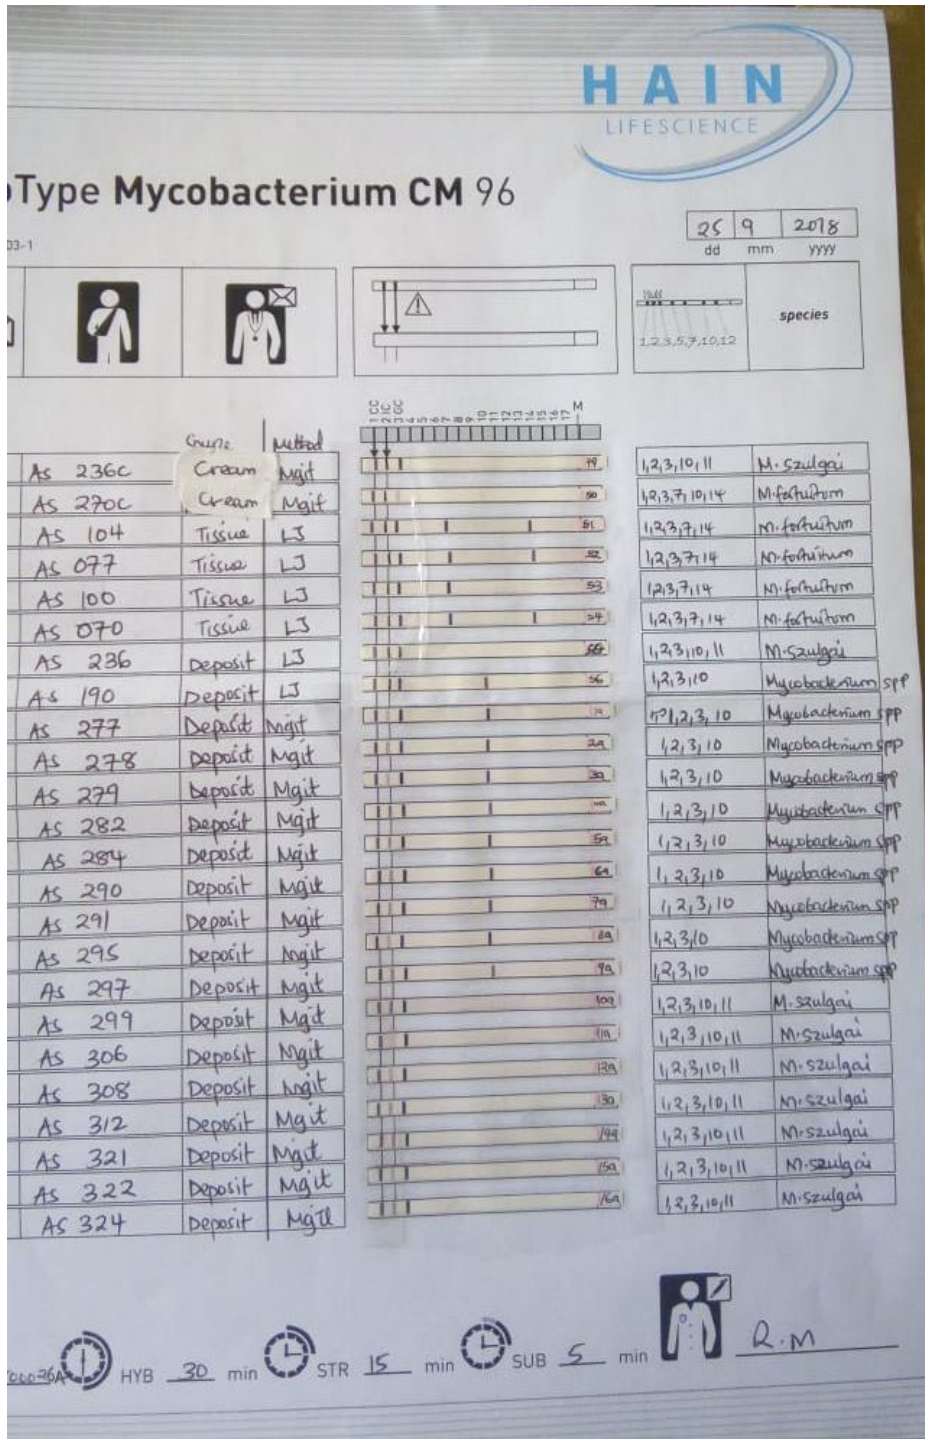 HAIN
LIFESCIENCE
Type Mycobacterium CM 96
03-1
25 9 2018
dd mm yyyy
1,2,3,5,7,10,12
species
1 CC 2 IC 3 GC 4 5 6 7 8 9 10 11 12 13 14 15 16 17 M
Method
AS 236C Cream Mgit 49 1,2,3,10,11 M. Szulgai
AS 270C Cream Mgit 50 1,2,3,7,10,14 M. fortuitum
AS 104 Tissue LJ 51 1,2,3,7,14 M. fortuitum
AS 077 Tissue LJ 52 1,2,3,7,14 M. fortuitum
AS 100 Tissue LJ 53 1,2,3,7,14 M. fortuitum
AS 070 Tissue LJ 54 1,2,3,7,14 M. fortuitum
AS 236 Deposit LJ 55 1,2,3,10,11 M. Szulgai
AS 190 Deposit LJ 56 1,2,3,10 Mycobacterium spp
AS 277 Deposit Mgit 1,2,3,10 Mycobacterium spp
AS 278 Deposit Mgit 2a 1,2,3,10 Mycobacterium spp
AS 279 Deposit Mgit 3a 1,2,3,10 Mycobacterium spp
AS 282 Deposit Mgit 4a 1,2,3,10 Mycobacterium spp
AS 284 Deposit Mgit 5a 1,2,3,10 Mycobacterium spp
AS 290 Deposit Mgit 6a 1,2,3,10 Mycobacterium spp
AS 291 Deposit Mgit 7a 1,2,3,10 Mycobacterium spp
AS 295 Deposit Mgit 8a 1,2,3,10 Mycobacterium spp
AS 297 Deposit Mgit 9a 1,2,3,10 Mycobacterium spp
AS 299 Deposit Mgit 10a 1,2,3,10,11 M. szulgai
AS 306 Deposit Mgit 11a 1,2,3,10,11 M. szulgai
AS 308 Deposit Mgit 12a 1,2,3,10,11 M. szulgai
AS 312 Deposit Mgit 13a 1,2,3,10,11 M. szulgai
AS 321 Deposit Mgit 14a 1,2,3,10,11 M. szulgai
AS 322 Deposit Mgit 15a 1,2,3,10,11 M. szulgai
AS 324 Deposit Mgit 16a 1,2,3,10,11 M. szulgai
HYB 30 min STR 15 min SUB 5 min R.M